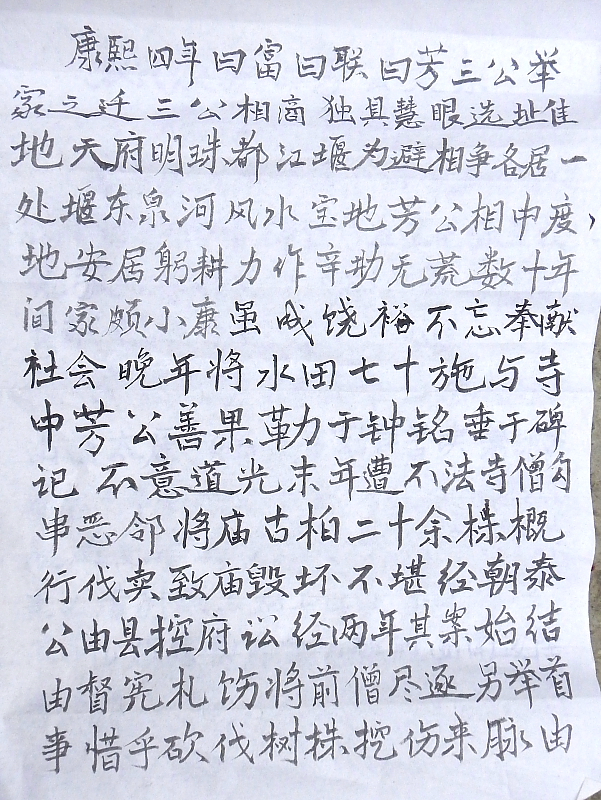 康熙四年曰富曰联曰芳三公举
家之迁三公相商独具慧眼选址佳
地天府明珠都江堰为避相争各居一
处堰东泉河风水宝地芳公相中度,
地安居躬耕力作辛劫无荒数十年
间家颇小康虽成饶裕不忘奉献
社会晚年将水田七十施与寺
中芳公善果勒力于钟铭垂于碑
记不意道光末年遭不法寺僧勾
串恶邻将庙古柏二十余株概
行伐卖致庙毁坏不堪经朝泰
公由县控府讼经两年其案始结
由督宪札饬将前僧尽逐另举首
事惜乎砍伐树株挖伤来脉由